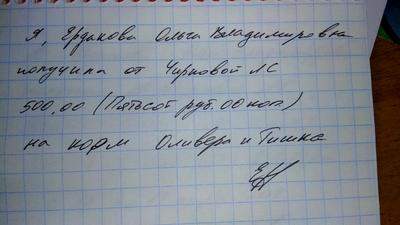 Я, Ердакова Ольга Владимировна
получила от Чирковой ЛС
500,00 (Пятьсот руб. 00 коп)
на корм Оливера и Тишке